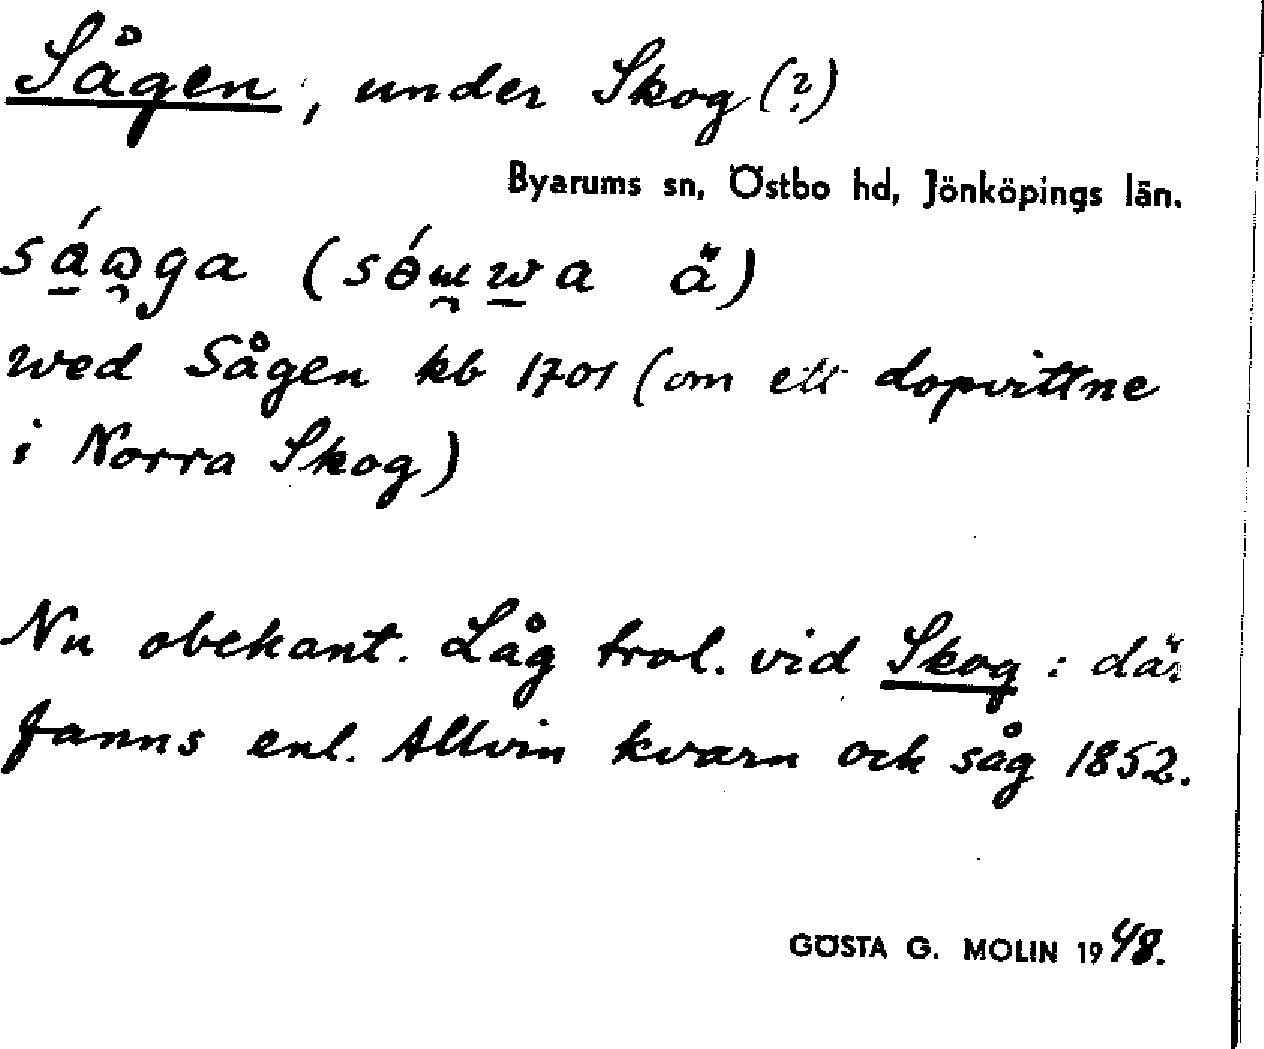 Sågen, under Skog (?)
Byarums sn, Östbo hd, Jönköpings län.
sáωga (sɵ́wwa ä)
wed Sågen kb 1701 (om ett dopvittne
i Norra Skog)
Nu obekant. Låg trol. vid Skog: där
fanns enl. Allvin kvarn och såg 1852.
GÖSTA G. MOLIN 1948.